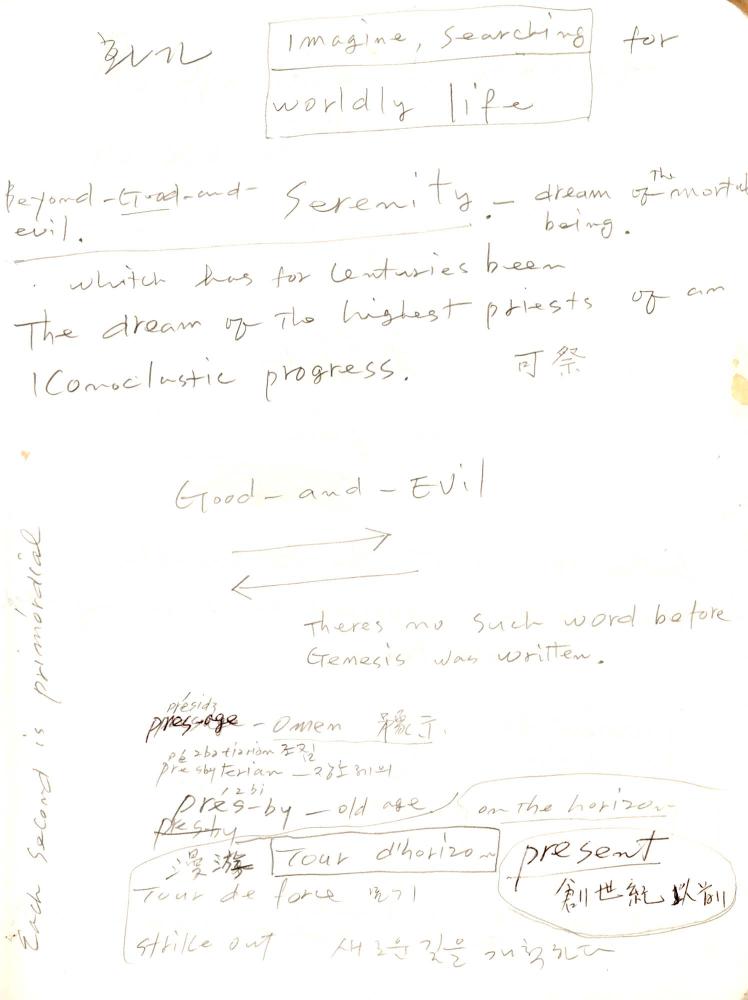 Imagine, searching for
worldly life
Beyond-Good-and-evil.
Serenity. - dream of The mortal
being.
whitch has for centuries been
The dream of The highest priests of an
Iconoclastic progress. 可祭
Good-and-Evil
Theres no such word before
Genesis was written.
Each second is primordial
présidʒ
pres-age - omen 示
presbyterian - 장로의
pres-by - old age on the horizon
presby
漫游 Tour d'horizon present
Tour de force 묘기 創世紀以前
strike out 새로운 길을 개척한다